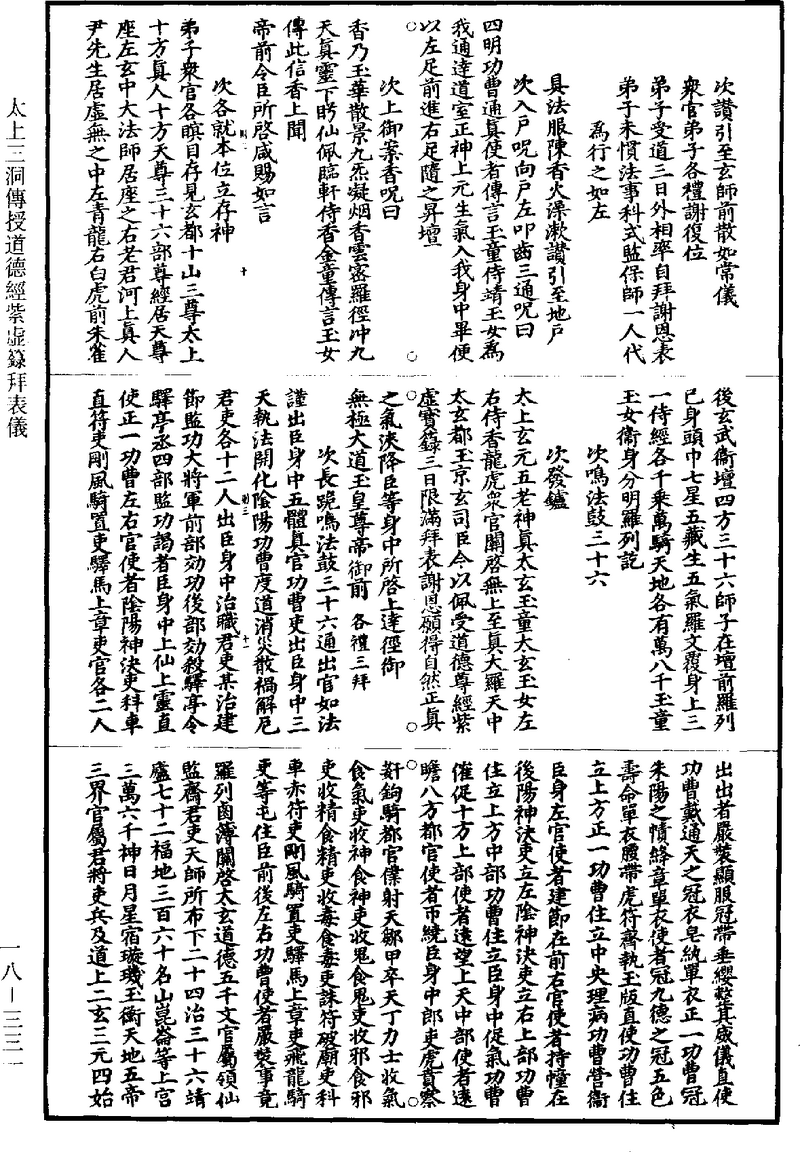 太上三洞傳授道德經紫虛籙拜表儀
一八－三三一
次讚引至玄師前散如常儀
衆官弟子各禮謝復位
弟子受道三日外相率自拜謝恩表
弟子未慣法事科式監保師一人代
爲行之如左
具法服陳香火澡漱讚引至地戶
次入戶呪向戶左叩齒三通呪曰
四明功曹通真使者傳言玉童侍靖玉女爲
我通達道室正神上元生氣入我身中畢便
以左足前進右足隨之昇壇
次上御案香呪曰
香乃玉華散景九炁凝烟香雲密羅徑冲九
天真靈下盻仙佩臨軒侍香金童傳言玉女
傳此信香上聞
帝前令臣所啓咸賜如言
次各就本位立存神
弟子衆官各瞑目存見玄都十山三尊太上
十方真人十方天尊三十六部尊經居天尊
座左玄中大法師居座之右老君河上真人
尹先生居虛無之中左青龍右白虎前朱雀
後玄武衞壇四方三十六師子在壇前羅列
已身頭中七星五藏生五氣羅文覆身上三
一侍經各千乘萬騎天地各有萬八千玉童
玉女衞身分明羅列訖
次鳴法鼓三十六
次發鑪
太上玄元五老神真太玄玉童太玄玉女左
右侍香龍虎衆官關啓無上至真大羅天中
太玄都玉京玄司臣今以佩受道德尊經紫
虛寳籙三日限滿拜表謝恩願得自然正真
之氣洪降臣等身中所啓上達徑御
無極大道玉皇尊帝御前　各禮三拜
次長跪鳴法鼓三十六通出官如法
謹出臣身中五體真官功曹吏出臣身中三
天執法開化陰陽功曹度道消災散禍解厄
君吏各十二人出臣身中治職君吏某治建
節監功大將軍前部効功後部効殺驛亭令
驛亭丞四部監功謁者臣身中上仙上靈直
使正一功曹左右官使者陰陽神決吏科車
直符吏剛風騎置吏驛馬上章吏官各二人
出出者嚴裝顯服冠帶垂纓整其威儀直使
功曹戴通天之冠衣皂紈單衣正一功曹冠
朱陽之幘絳章單衣使者冠九德之冠五色
壽命單衣腰帶虎符齎執玉版直使功曹住
立上方正一功曹住立中央理病功曹營衞
臣身左官使者建節在前右官使者持幢在
後陽神決吏立左陰神決吏立右上部功曹
住立上方中部功曹住立臣身中促氣功曹
催促十方上部使者遠望上天中部使者遠
瞻八方都官使者帀繞臣身中郎吏虎賁察
姧鉤騎都官僕射天騶甲卒天丁力士收氣
食氣吏收神食神吏收鬼食鬼吏收邪食邪
吏收精食精吏收毒食毒吏誅符破廟吏科
車赤符吏剛風騎置吏驛馬上章吏飛龍騎
吏等屯住臣前後左右功曹使者嚴裝事竟
羅列鹵簿關啓太玄道德五千文官屬領仙
監齋君吏天師所布下二十四治三十六靖
廬七十二福地三百六十名山崑崙等上宮
三萬六千神日月星宿璇璣玉衡天地五帝
三界官屬君將吏兵及道上二玄三元四始